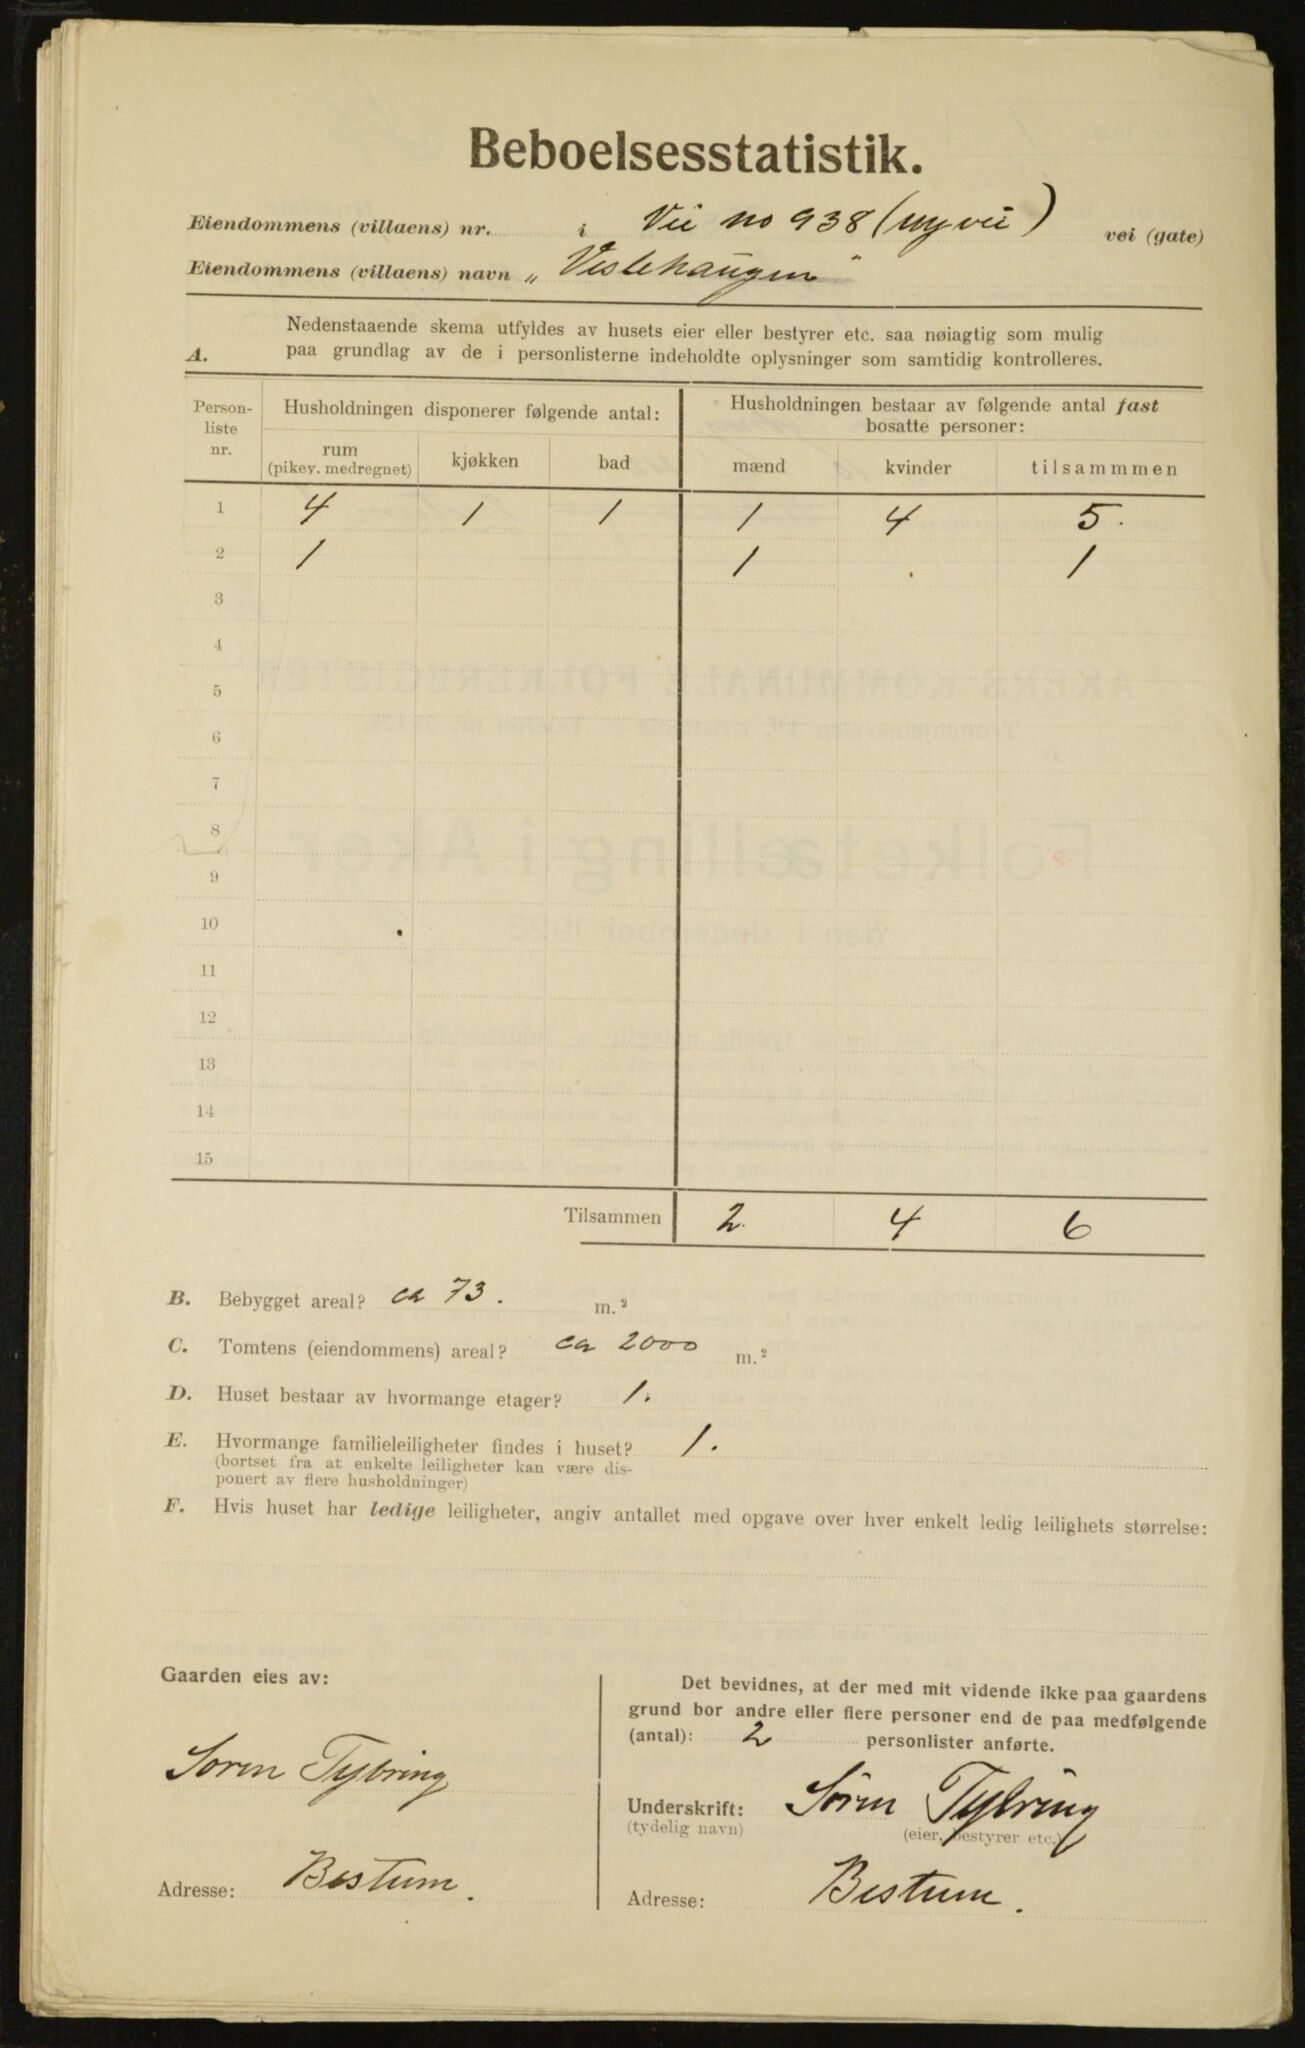 Beboelsesstatistik.
Eiendommens (villaens) nr. i Vei no 938 (ny vei) vei (gate)
Eiendommens (villaens) navn „ Veslehaugen "
A. Nedenstaaende skema utfyldes av husets eier eller bestyrer etc. saa nøiagtig som mulig
paa grundlag av de i personlisterne indeholdte oplysninger som samtidig kontrolleres.
Person-
liste
nr.
Husholdningen disponerer følgende antal:
Husholdningen bestaar av følgende antal fast
bosatte personer:
rum
(pikev. medregnet)
kjøkken bad mænd kvinder tilsammen
1 4 1 1 1 4 5.
2 1 1 . 1
3
4
5
6
7
8
9
10
11
12
13
14
15
Tilsammen 2 4 6
B. Bebygget areal? ca 73. m.²
C. Tomtens (eiendommens) areal? ca 2000 m.²
D. Huset bestaar av hvormange etager? 1.
E. Hvormange familieleiligheter findes i huset? 1.
(bortset fra at enkelte leiligheter kan være dis-
ponert av flere husholdninger)
F. Hvis huset har ledige leiligheter, angiv antallet med opgave over hver enkelt ledig leilighets størrelse:
Gaarden eies av:
Soren Tybring
Adresse: Bestum.
Det bevidnes, at der med mit vidende ikke paa gaardens
grund bor andre eller flere personer end de paa medfølgende
(antal): 2 personlister anførte.
Underskrift: Sören Tybring
(tydelig navn) (eier, bestyrer etc.)
Adresse: Bestum.